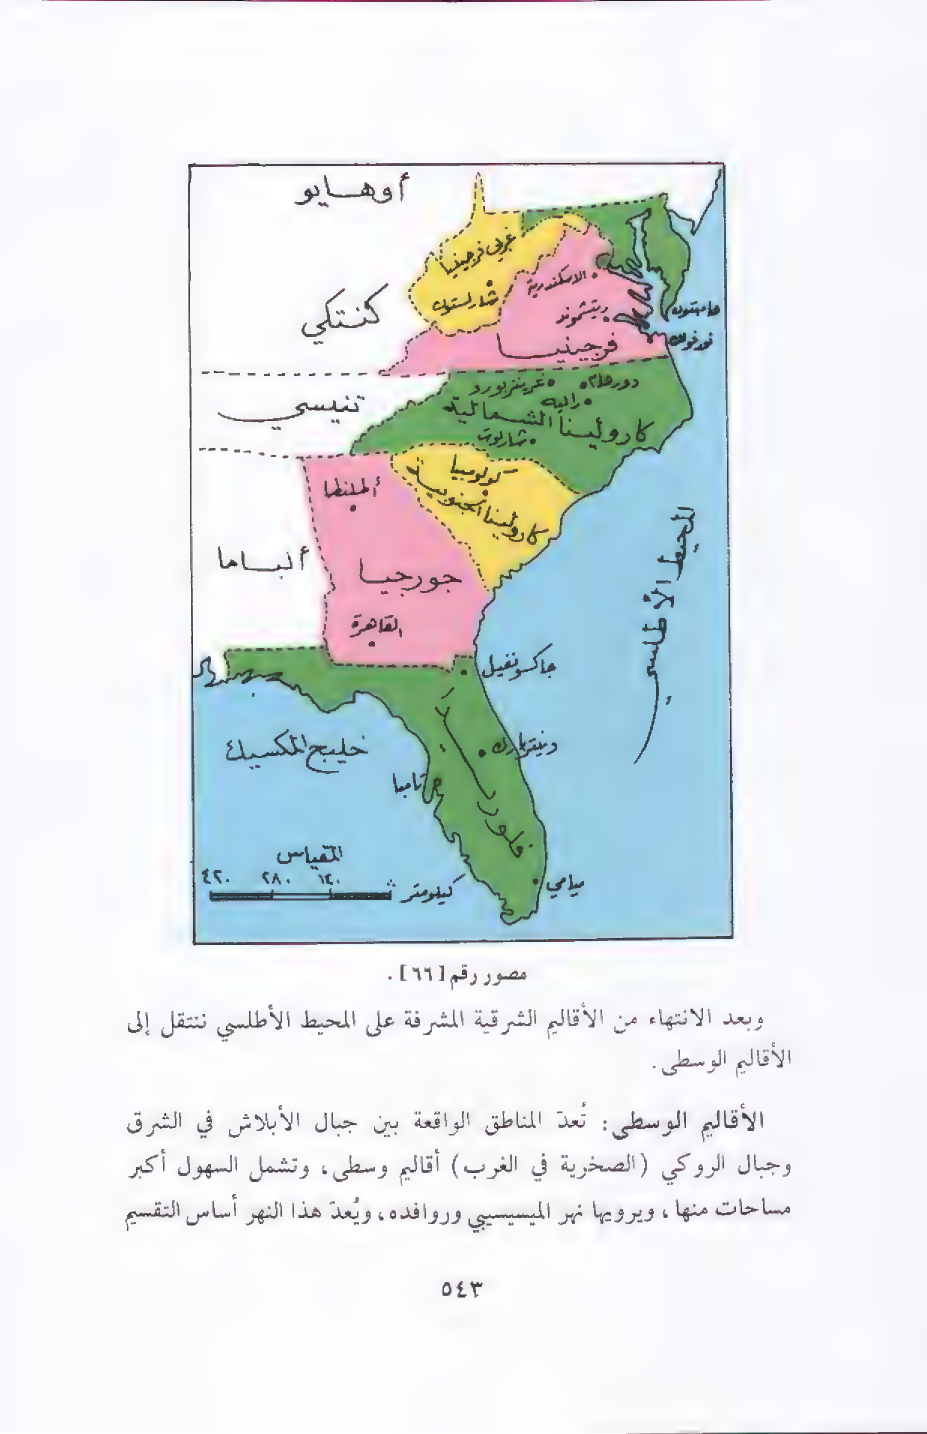 أوهايو
غربي فرجينيا
شارلستون
الاسكندرية
ريتشموند
هامبتون
نورفولك
كنتكي
فرجينيا
دورهام
غرينزبورو
رالية
تنيسي
كارولينا الشمالية
شارلوت
كولومبيا
كارولينا الجنوبية
أطلنطا
ألباما
جورجيا
القاهرة
المحيط الأطلسي
جاكسونفيل
خليج المكسيك
تامبا
فلوريدا
ميامي
المقياس
٤٢٠ ٢٨٠ ١٤٠ ٠ كيلومتر
مصور رقم [٦٦] .
وبعد الانتهاء من الأقاليم الشرقية المشرفة على المحيط الأطلسي ننتقل إلى
الأقاليم الوسطى .
الأقاليم الوسطى : تُعدّ المناطق الواقعة بين جبال الأبلاش في الشرق
وجبال الروكي (الصخرية في الغرب) أقاليم وسطى ، وتشمل السهول أكبر
مساحات منها ، ويرويها نهر الميسيسيبي وروافده ، ويُعدّ هذا النهر أساس التقسيم
٥٤٣